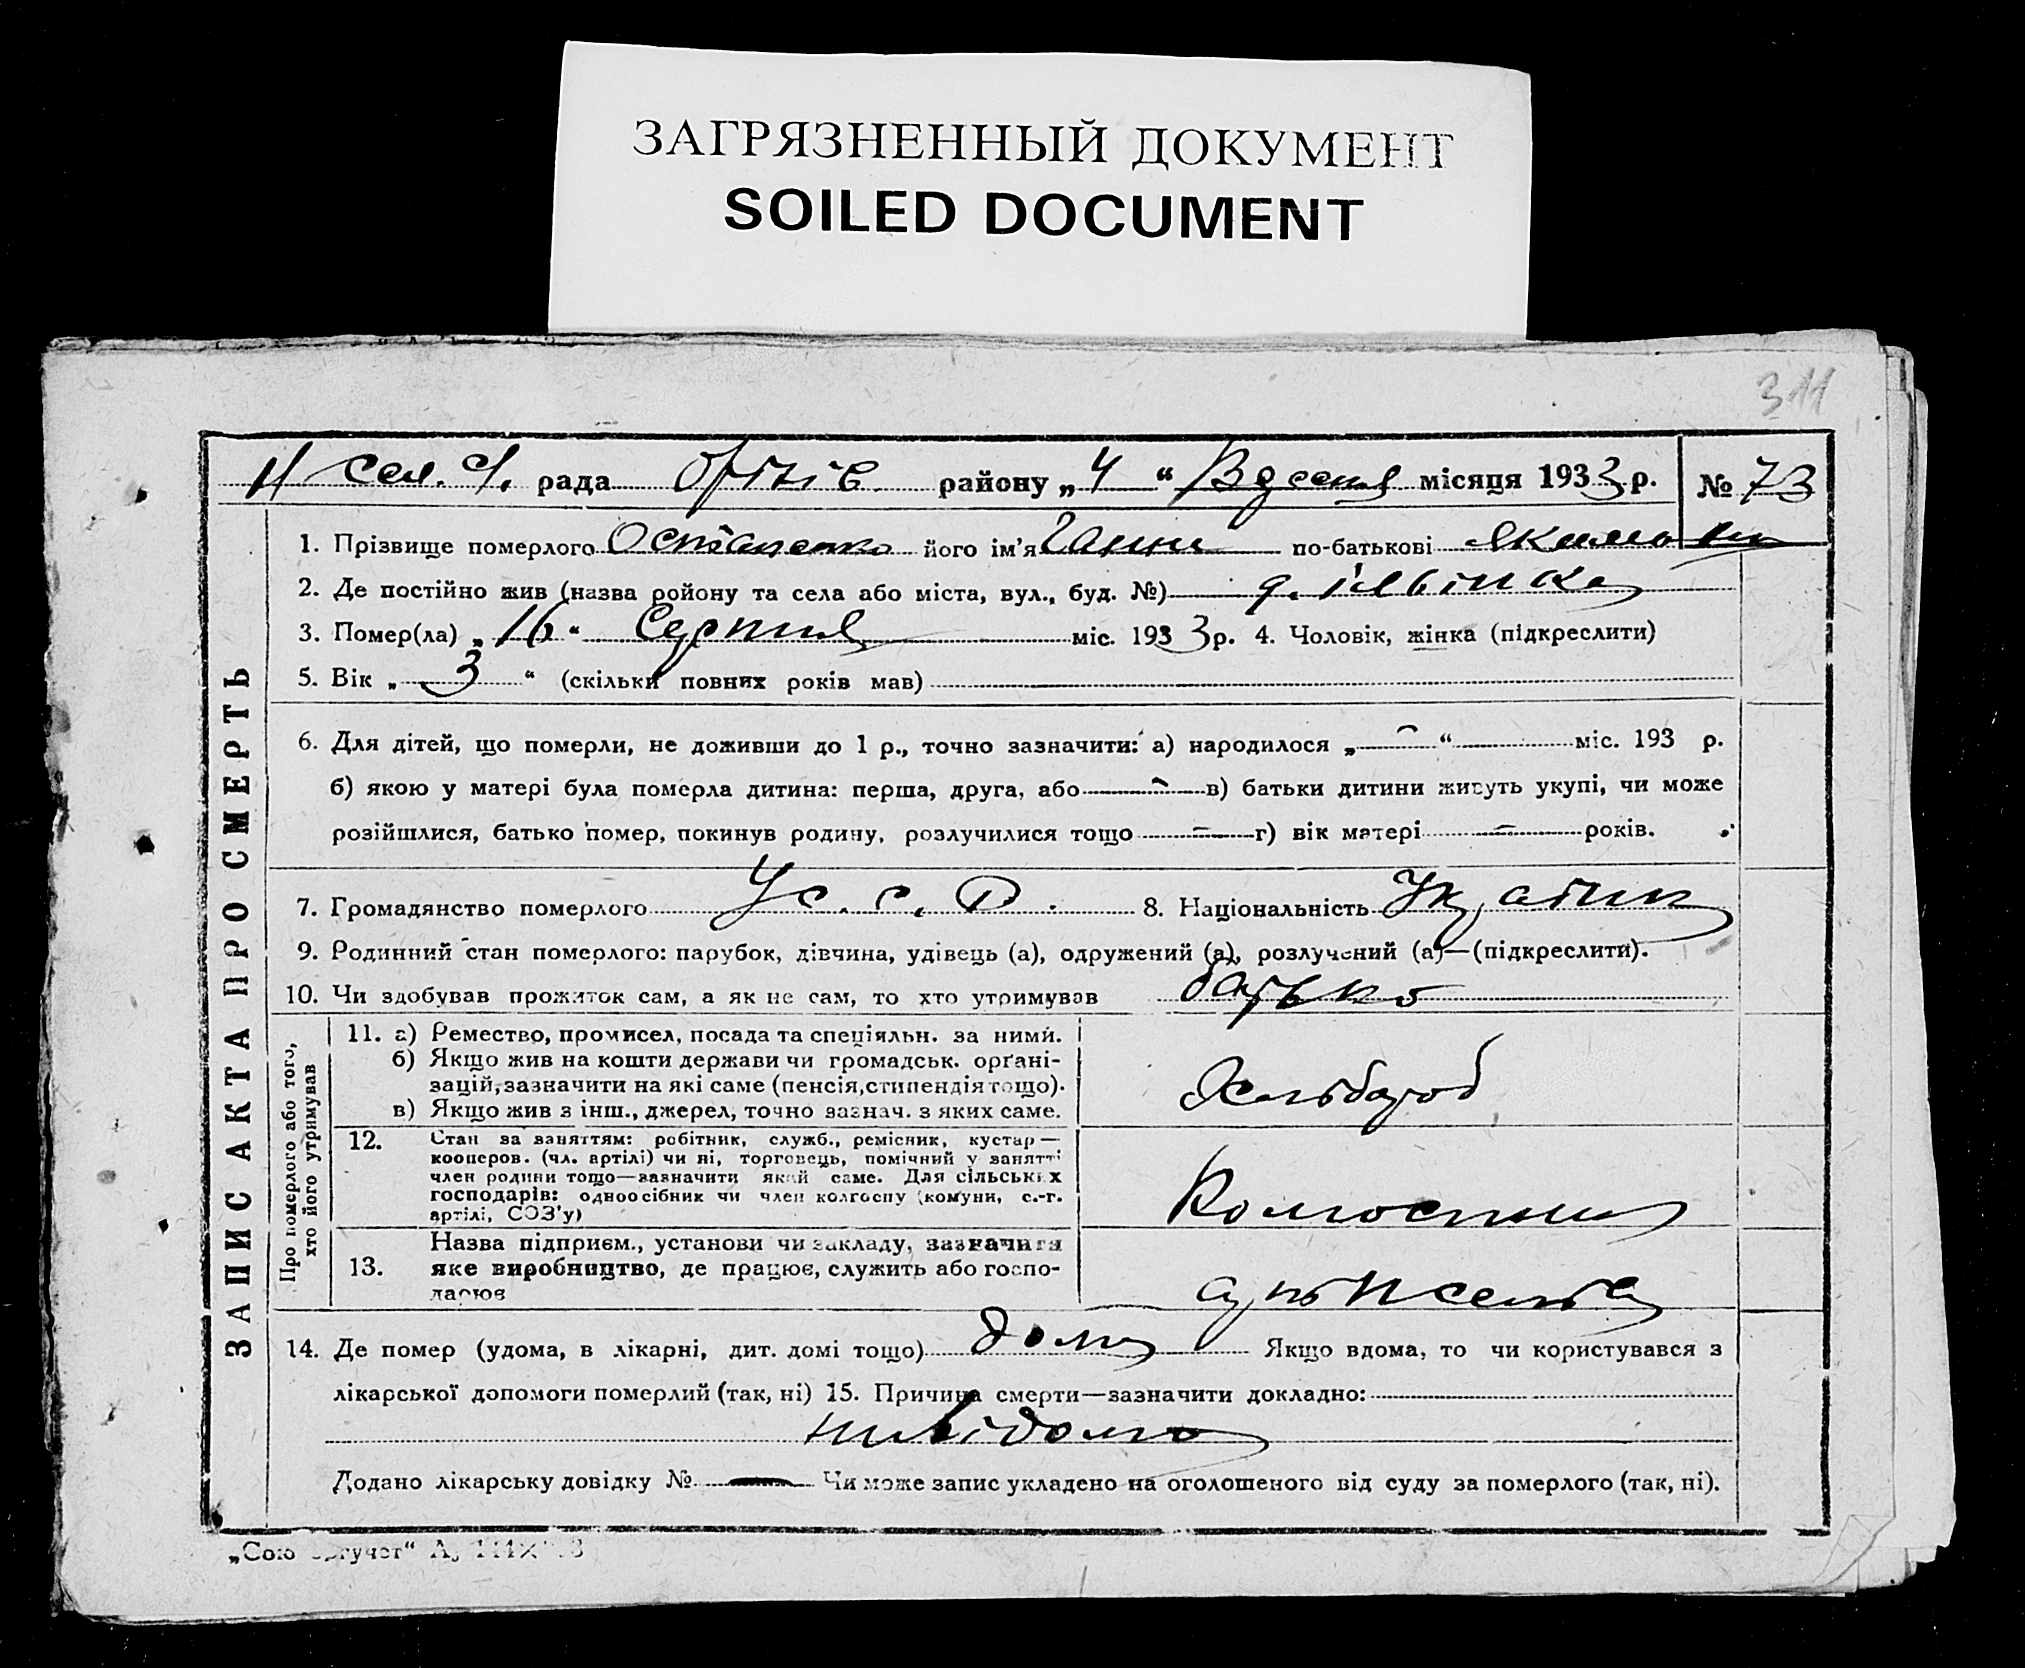 ЗАГРЯЗНЕННЫЙ ДОКУМЕНТ
SOILED DOCUMENT
311
рада району „4“ місяця 1933 р. № 73
1. Прізвище померлого Остапенко його ім'я Ганна по-батькові
2. Де постійно жив (назва ройону та села або міста, вул., буд. №)
3. Помер(ла) „16“ Серпня міс. 1933 р. 4. Чоловік, жінка (підкреслити)
5. Вік „3“ (скільки повних років мав)
6. Для дітей, що померли, не доживши до 1 р., точно зазначити: а) народилося „-“ міс. 193 р.
б) якою у матері була померла дитина: перша, друга, або - в) батьки дитини живуть укупі, чи може
розійшлися, батько помер, покинув родину, розлучилися тощо - г) вік матері - років.
7. Громадянство померлого У.С.С.Р. 8. Національність
9. Родинний стан померлого: парубок, дівчина, удівець (а), одружений (а), розлучений (а)—(підкреслити).
10. Чи здобував прожиток сам, а як не сам, то хто утримував батько
ЗАПИС АКТА ПРО СМЕРТЬ
Про померлого або того,
хто його утримував
11. а) Ремество, промисел, посада та спеціяльн. за ними.
б) Якщо жив на кошти держави чи громадськ. орґані-
зацій, зазначити на які саме (пенсія, стипендія тощо).
в) Якщо жив з інш., джерел, точно зазнач. з яких саме.
Хлібороб
12. Стан за заняттям: робітник, служб., ремісник, кустар—
кооперов. (чл. артілі) чи ні, торговець, помічний у занятті
член родини тощо—зазначити який саме. Для сільських
господарів: одноосібник чи член колгоспу (комуни, с.-г.
артілі, СОЗ'у)
Колгоспник
13. Назва підприєм., установи чи закладу, зазначити
яке виробництво, де працює, служить або госпо-
дарює
14. Де помер (удома, в лікарні, дит. домі тощо) дома Якщо вдома, то чи користувався з
лікарської допомоги померлий (так, ні) 15. Причина смерти—зазначити докладно:
невідомо
Додано лікарську довідку № — Чи може запис укладено на оголошеного від суду за померлого (так, ні).